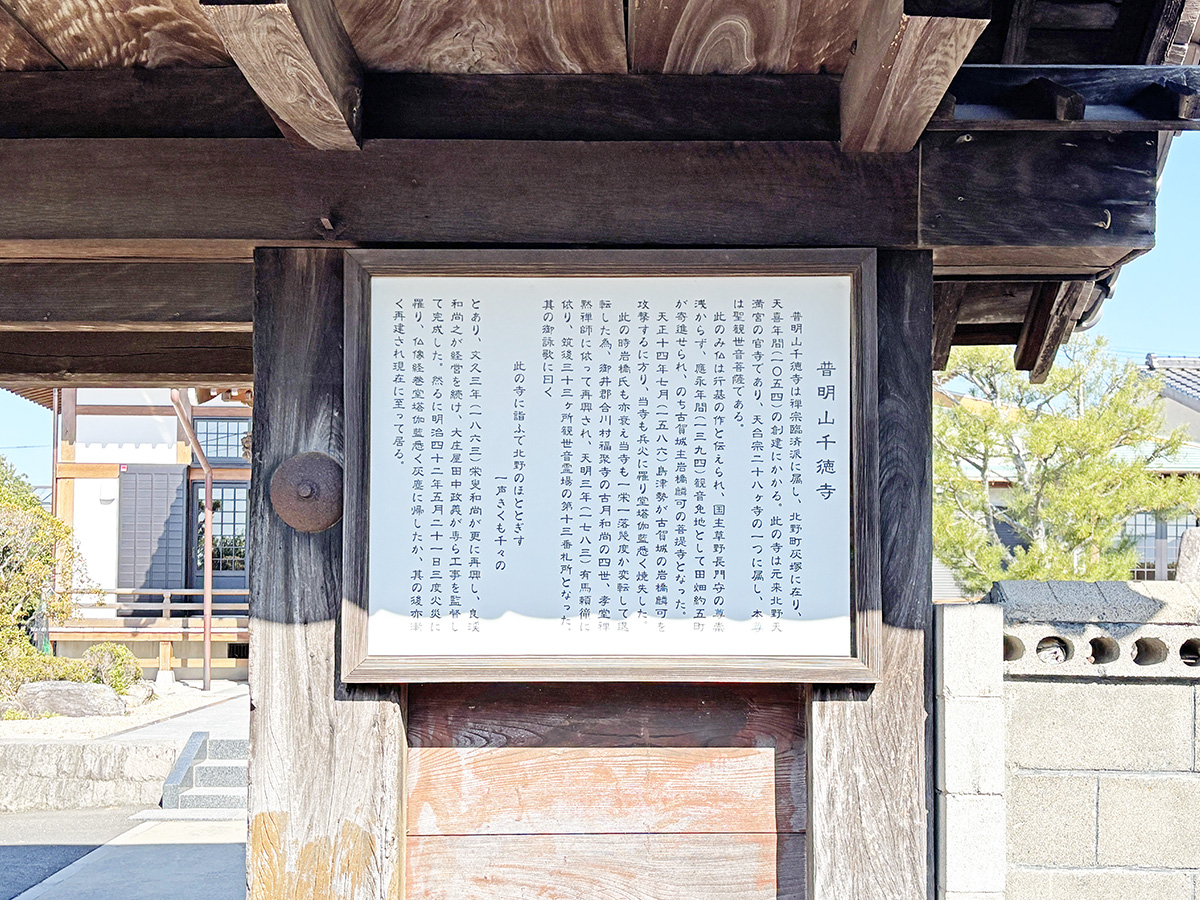 普明山千徳寺
普明山千徳寺は禅宗臨済派に属し、北野町灰塚に在り、
天喜年間(一〇五四)の創建にかかる。此の寺は元来北野天
満宮の官寺であり、天台宗二十八ヶ寺の一つに属し、本尊
は聖観世音菩薩である。
此のみ仏は行基の作と伝えられ、国主草野長門守の尊崇
浅からず、應永年間(一三九四)観音免地として田畑約五町
が寄進せられ、のち古賀城主岩橋麟可の菩提寺となった。
天正十四年七月(一五八六)島津勢が古賀城の岩橋麟可を
攻撃するに方り、当寺も兵火に罹り堂塔伽藍悉く焼失した。
此の時岩橋氏も亦衰え当寺も一宋一落幾度か変転して退
転した為、御井郡合川村福聚寺の古月和尚の四世、孝堂禅
黙禅師に依って再興され、天明三年(一七八三)有馬頼僮に
依り、筑後三十三ヶ所観世音霊場の第十三番札所となった。
其の御詠歌に曰く
此の寺に詣ふで北野のほととぎす
一声きくも千々の
とあり、文久三年(一八六三)栄叟和尚が更に再興し、良渓
和尚之が経営を続け、大庄屋田中政義が専ら工事を監督し
て完成した。然るに明治四十二年五月二十一日三度火災に
罹り、仏像経巻堂塔伽藍悉く灰塵に帰したか、其の後亦漸
く再建され現在に至って居る。